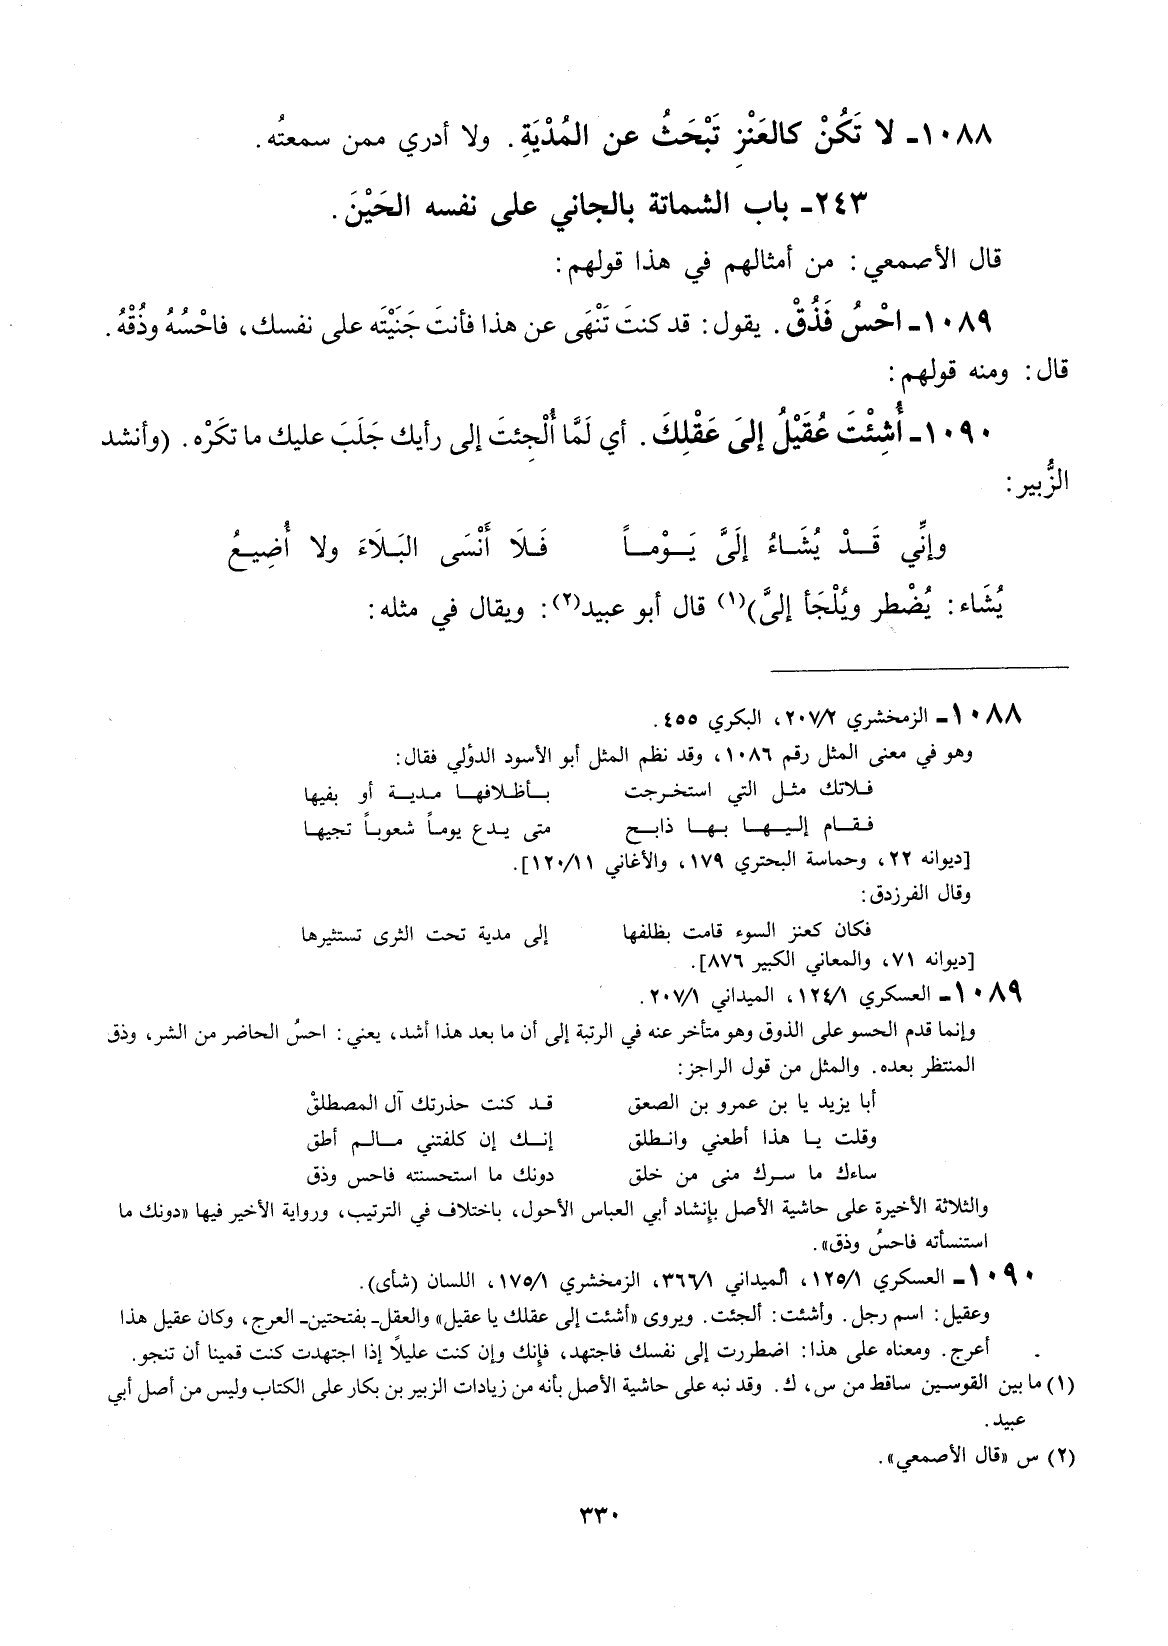 ١٠٨٨ـ لا تَكُنْ كالعَنْزِ تَبْحَثُ عن المُدْيَةِ. ولا أدري ممن سمعتُه.
٢٤٣ـ باب الشماتة بالجاني على نفسه الحَيْنَ.
قال الأصمعي: من أمثالهم في هذا قولهم:
١٠٨٩ـ احْسُ فَذُقْ. يقول: قد كنتَ تَنْهَى عن هذا فأنتَ جَنَيْتَه على نفسك، فاحْسُهُ وذُقْهُ.
قال: ومنه قولهم:
١٠٩٠ـ أُشِئْتَ عُقَيْلُ إلىَ عَقْلِكَ. أي لَمَّا أُلْجِئتَ إلى رأيك جَلَبَ عليك ما تكَرْه. (وأنشد
الزُّبير:
وإنِّي قَدْ يُشَاءُ إلَىَّ يَوْماً فَلَا أَنْسَى البَلَاءَ ولا أُضِيعُ
يُشَاء: يُضْطر ويُلْجَأ إلىَّ)(١) قال أبو عبيد(٢): ويقال في مثله:
١٠٨٨ـ الزمخشري ٢٠٧/٢، البكري ٤٥٥.
وهو في معنى المثل رقم ١٠٨٦، وقد نظم المثل أبو الأسود الدؤلي فقال:
فلاتك مثل التي استخرجت بأظلافها مدية أو بفيها
فقام إليها بها ذابح متى يدع يوماً شعوباً تجيها
[ديوانه ٢٢، وحماسة البحتري ١٧٩، والأغاني ١٢٠/١١].
وقال الفرزدق:
فكان كعنز السوء قامت بظلفها إلى مدية تحت الثرى تستثيرها
[ديوانه ٧١، والمعاني الكبير ٨٧٦].
١٠٨٩ـ العسكري ١٢٤/١، الميداني ٢٠٧/١.
وإنما قدم الحسو على الذوق وهو متأخر عنه في الرتبة إلى أن ما بعد هذا أشد، يعني: احسُ الحاضر من الشر، وذق
المنتظر بعده. والمثل من قول الراجز:
أبا يزيد يا بن عمرو بن الصعق قد كنت حذرتك آل المصطلقْ
وقلت يا هذا أطعني وانطلق إنك إن كلفتني مالم أطق
ساءك ما سرك منى من خلق دونك ما استحسنته فاحس وذق
والثلاثة الأخيرة على حاشية الأصل بإنشاد أبي العباس الأحول، باختلاف في الترتيب، ورواية الأخير فيها «دونك ما
استنسأته فاحسُ وذق».
١٠٩٠ـ العسكري ١٢٥/١، الميداني ٣٦٦/١، الزمخشري ١٧٥/١، اللسان (شأى).
وعقيل: اسم رجل. وأشئت: ألجئت. ويروى «أشئت إلى عقلك يا عقيل» والعقل ـ بفتحتين ـ العرج، وكان عقيل هذا
أعرج. ومعناه على هذا: اضطررت إلى نفسك فاجتهد، فإنك وإن كنت عليلاً إذا اجتهدت كنت قمينا أن تنجو.
(١) ما بين القوسين ساقط من س، ك. وقد نبه على حاشية الأصل بأنه من زيادات الزبير بن بكار على الكتاب وليس من أصل أبي
عبيد.
(٢) س «قال الأصمعي».
٣٣٠